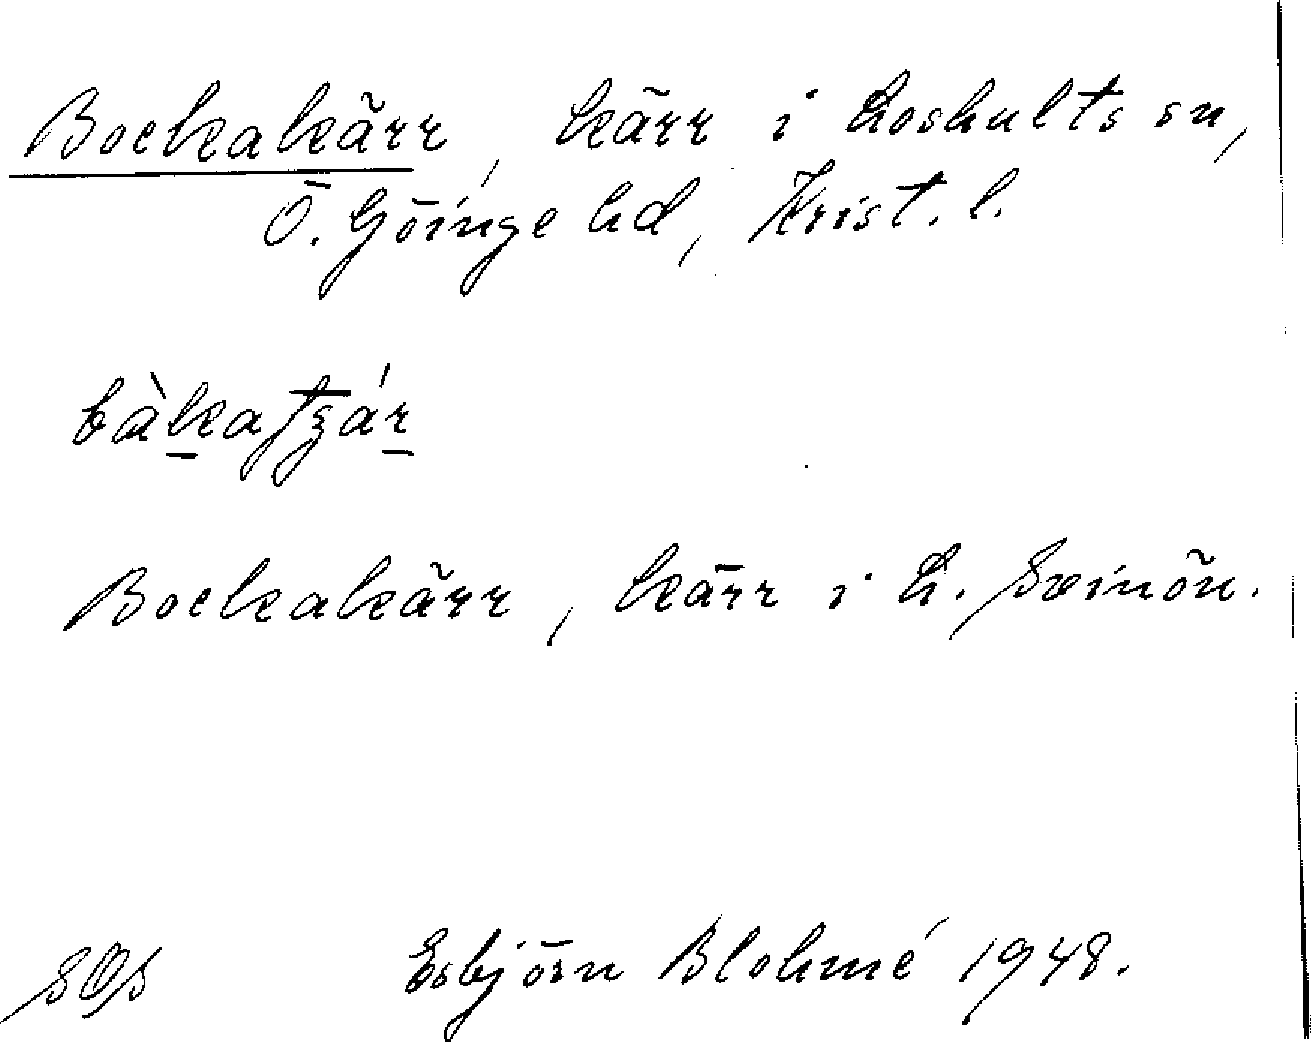 Bockakärr, kärr i Loshults sn,
Ö. Göinge hd, Krist. l.
bàkatʒár
Bockakärr, kärr i L. Svinön.
SOS Esbjörn Blohmé 1948.